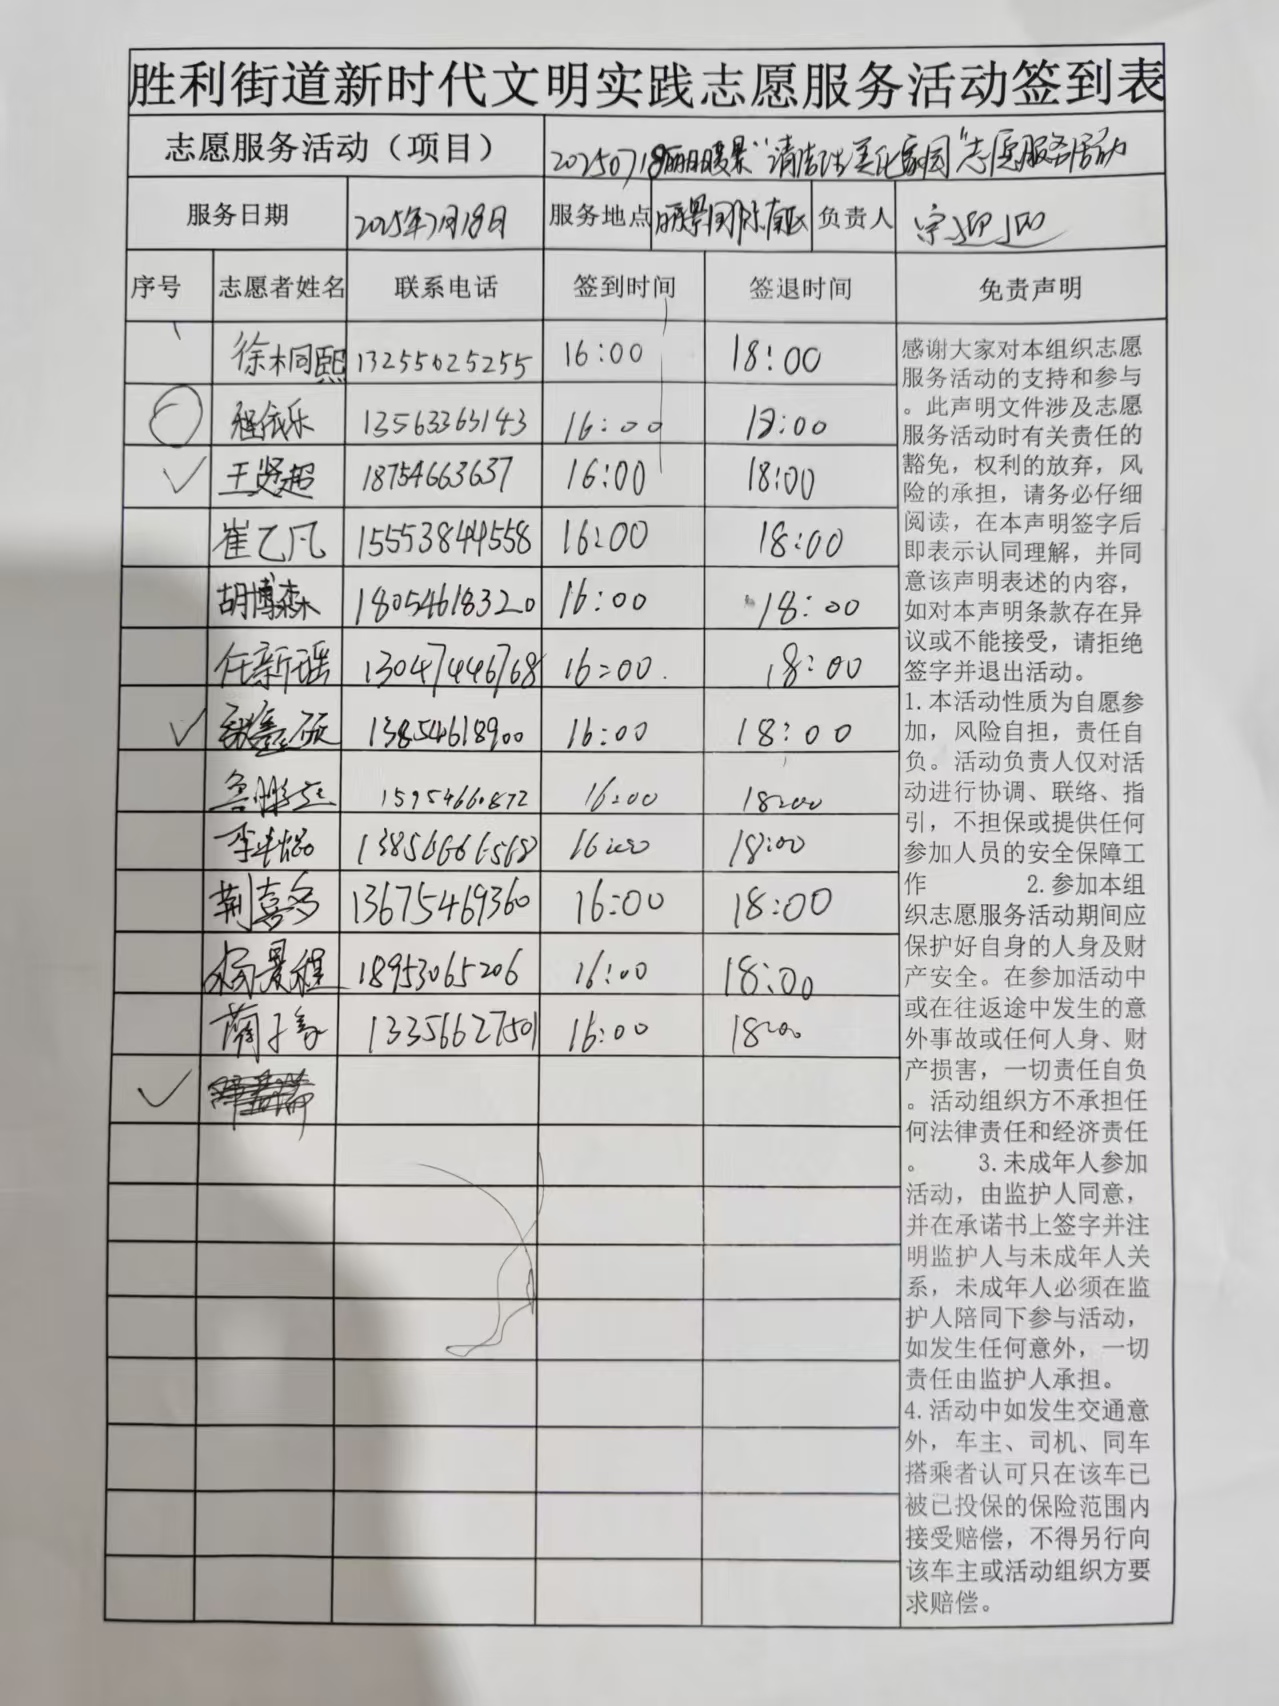 胜利街道新时代文明实践志愿服务活动签到表
志愿服务活动（项目） 20250718 "清洁 美化家园"志愿服务活动
服务日期 2025年7月18日 服务地点 负责人 宗迎迎
序号 志愿者姓名 联系电话 签到时间 签退时间 免责声明
徐桐熙 13255625255 16:00 18:00
程依乐 13563365143 16:00 18:00
王贤超 18754663637 16:00 18:00
崔乙凡 15553844558 16:00 18:00
胡博森 18054618320 16:00 18:00
任新瑶 13047446768 16:00 18:00
鑫硕 13854618900 16:00 18:00
15954660872 16:00 18:00
李 16:00 18:00
荆喜多 13675469360 16:00 18:00
杨景程 18953065206 16:00 18:00
蔺子 13356627501 16:00 18:00
感谢大家对本组织志愿
服务活动的支持和参与
。此声明文件涉及志愿
服务活动时有关责任的
豁免，权利的放弃，风
险的承担，请务必仔细
阅读，在本声明签字后
即表示认同理解，并同
意该声明表述的内容，
如对本声明条款存在异
议或不能接受，请拒绝
签字并退出活动。
1.本活动性质为自愿参
加，风险自担，责任自
负。活动负责人仅对活
动进行协调、联络、指
引，不担保或提供任何
参加人员的安全保障工
作 2.参加本组
织志愿服务活动期间应
保护好自身的人身及财
产安全。在参加活动中
或在往返途中发生的意
外事故或任何人身、财
产损害，一切责任自负
。活动组织方不承担任
何法律责任和经济责任
。 3.未成年人参加
活动，由监护人同意，
并在承诺书上签字并注
明监护人与未成年人关
系，未成年人必须在监
护人陪同下参与活动，
如发生任何意外，一切
责任由监护人承担。
4.活动中如发生交通意
外，车主、司机、同车
搭乘者认可只在该车已
被已投保的保险范围内
接受赔偿，不得另行向
该车主或活动组织方要
求赔偿。